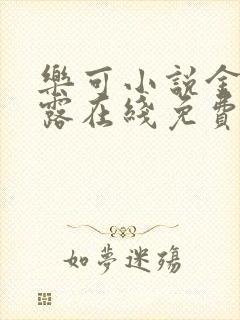 樂可小說金
露在綫免費
如夢迷殤